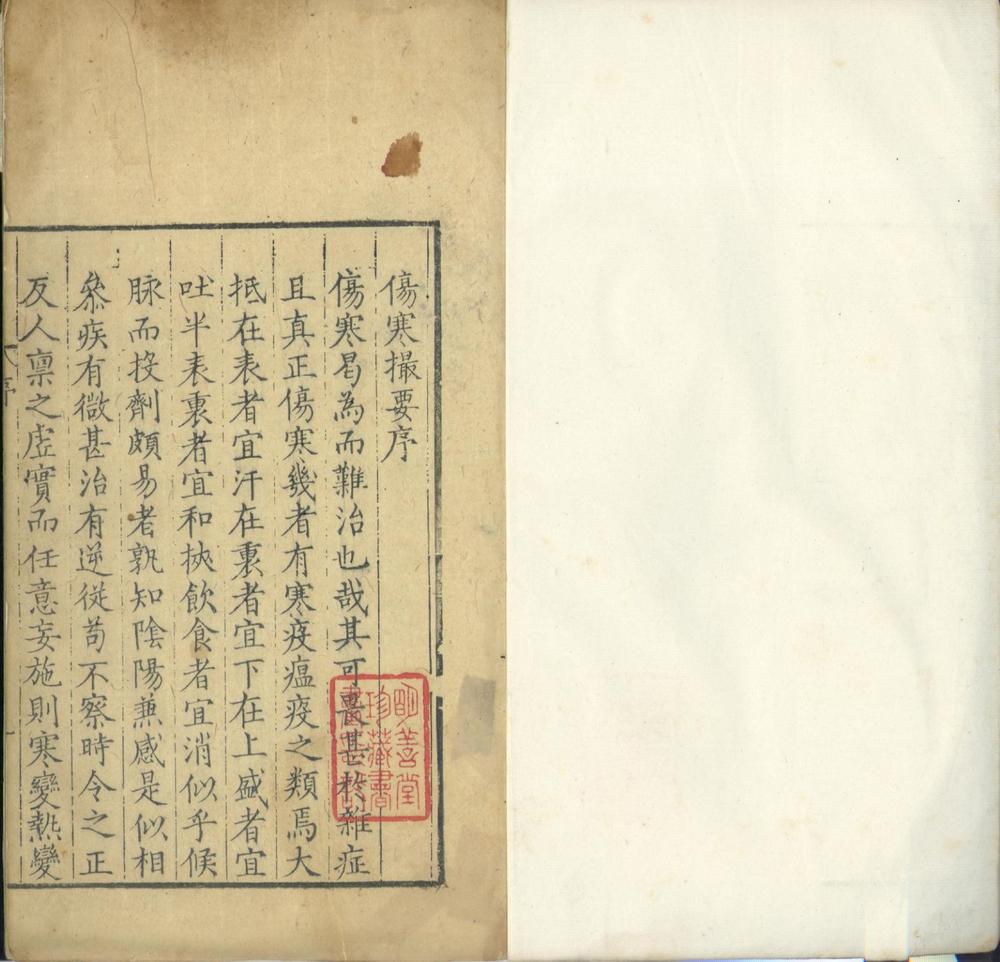 傷寒撮要序
傷寒曷為而難治也哉其可畏甚於雜症
且真正傷寒幾者有寒疫瘟疫之類焉大
抵在表者宜汗在裏者宜下在上盛者宜
吐半表裏者宜和挾飲食者宜消似乎候
脉而投劑頗易者孰知陰陽兼感是似相
叅疾有微甚治有逆從茍不察時令之正
反人稟之虛實而任意妄施則寒變熱變
序
明善堂
珍藏書